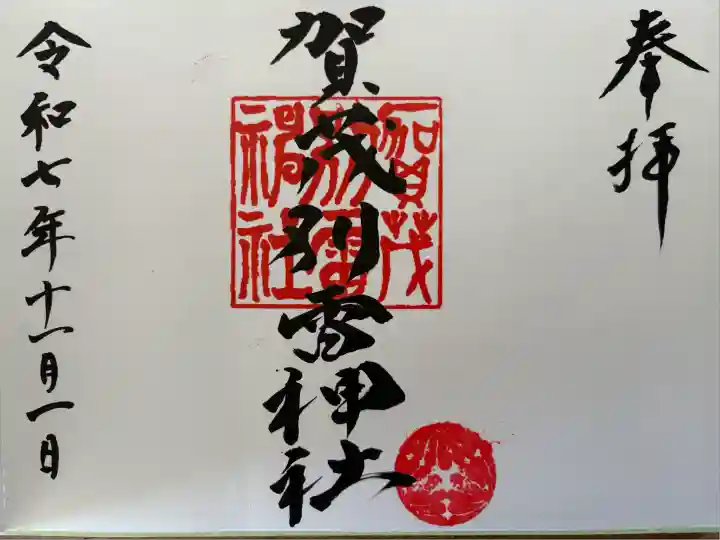 奉拝
賀茂別雷神社
賀茂
別雷
神社
令和七年十一月一日